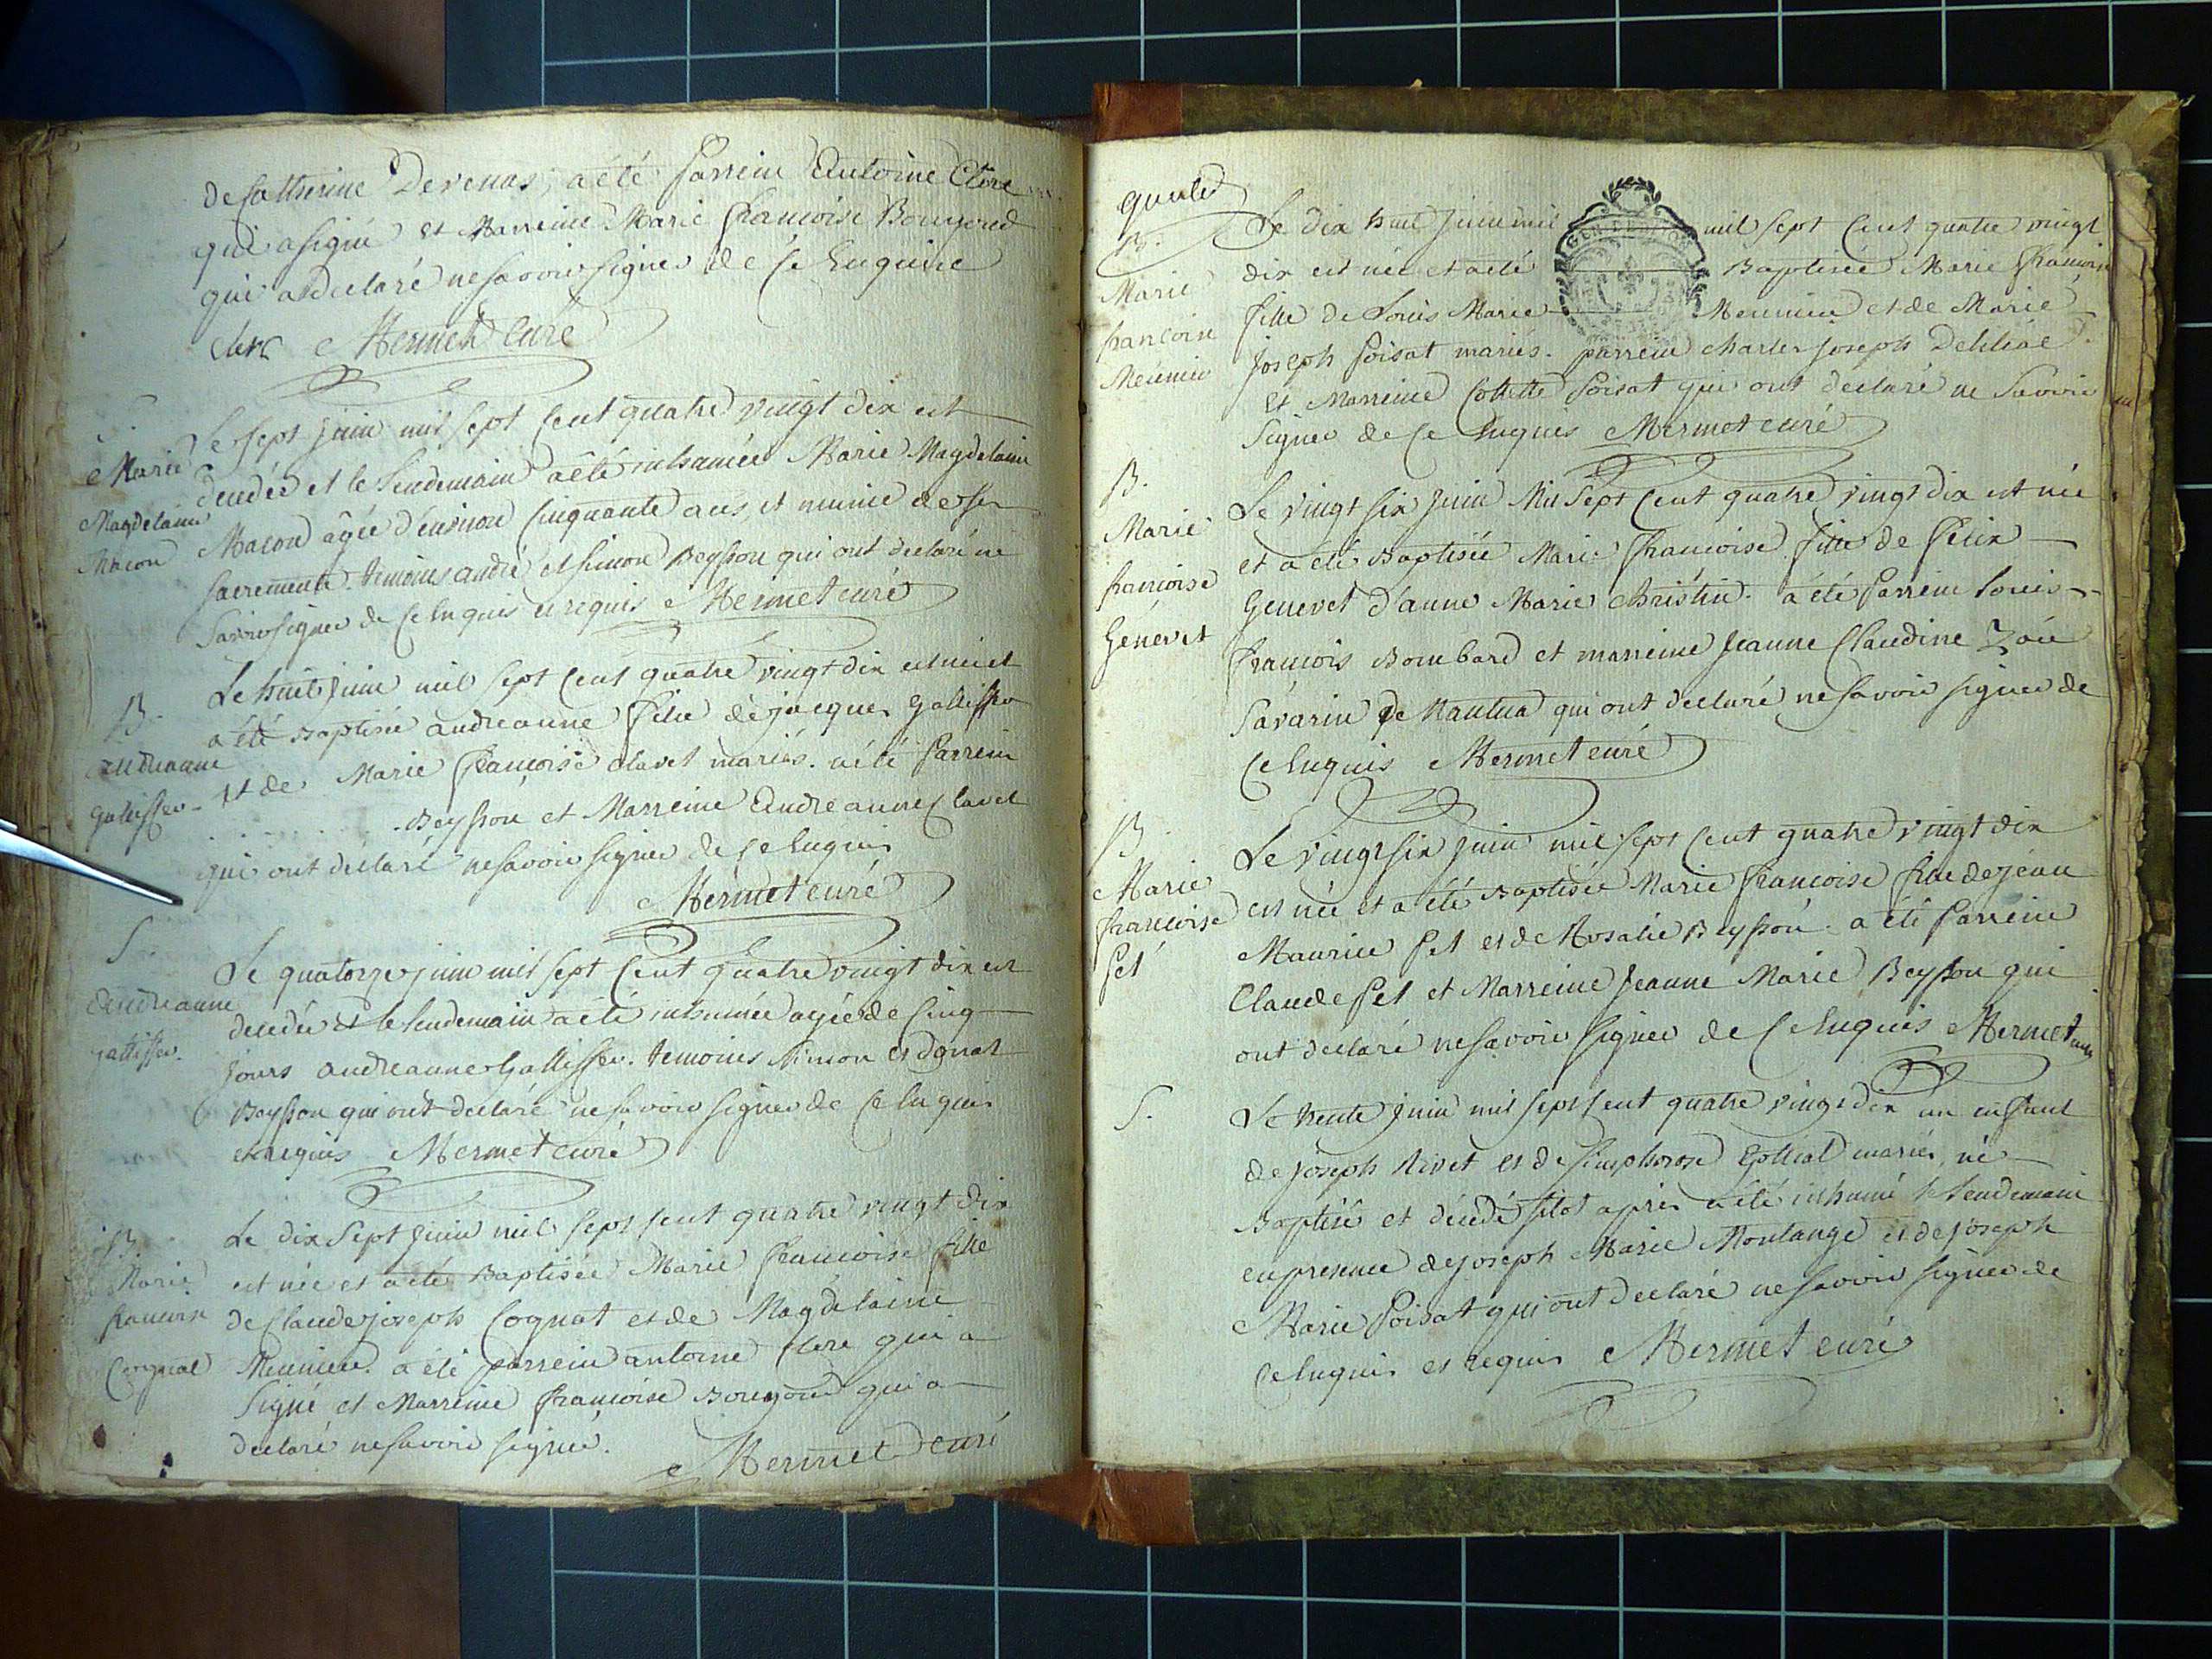 de Catherine Devenas, a été parrein Antoine Clere
qui a signé et Marreine Marie francoise Bougoud
qui a déclaré ne savoir signer de ce Enquise
clerc Mermet Curé
S.
Marie
Magdelaine
Macon
Le sept juin mil sept cent quatre vingt dix est
decedée et le lendemain a été inhumée Marie Magdelaine
Macon agée d'environ cinquante ans, et munie de ses
sacrements. temoins andré et simon Beysson qui ont declaré ne
savoir signer de ce Enquis et requis Mermet curé
B.
andreanne
gallisser
Le huit juin mil sept cent quatre vingt dix est née et
a été Baptisée andreanne fille de jacques gallisser
et de Marie francoise claret mariés. a été parrein
Beysson et Marreine Andreanne claret
qui ont déclaré ne savoir signer de ce Enquis
Mermet curé
S.
andreanne
gallisser.
Le quatorze juin mil sept cent quatre vingt dix est
decedée et le lendemain a été inhumée agée de cinq
jours andreanne gallisser. temoins simon et
Beysson qui ont declaré ne savoir signer de ce Enquis
et requis Mermet curé
B.
Marie
francoise
Cognat
Le dix sept juin mil sept cent quatre vingt dix
est née et a été Baptisée Marie francoise fille
de Claude joseph Cognat et de Magdelaine
Meunier. a été parrein antoine clere qui a
signé et Marreine francoise Bougoud qui a
declaré ne savoir signer.
Mermet curé
B.
Marie
francoise
Meunier
Le dix huit juin mil mil sept cent quatre vingt
dix est née et a été Baptisée Marie francoise
fille de Louis Marie Meunier et de Marie
joseph Poisat mariés. parrein charles joseph
et Marreine Collette Poisat qui ont declaré ne savoir
signer de ce Enquis Mermet curé
B.
Marie
francoise
Genevet
Le vingt six juin mil sept cent quatre vingt dix est née
et a été Baptisée Marie francoise fille de felix
Genevet d'anne Marie Christin. a été parrein Louis
francois Bombard et marreine jeanne Claudine Zoée
Savarin de Nantua qui ont declaré ne savoir signer de
ce Enquis Mermet curé
B.
Marie
francoise
Pet
Le vingt six juin mil sept cent quatre vingt dix
est née et a été Baptisée Marie francoise fille de jean
Maurice Pet et de Rosalie Beysson. a été parrein
Claude Pet et Marreine jeanne Marie Beysson qui
ont declaré ne savoir signer de ce Enquis Mermet curé
S.
Le trente juin mil sept cent quatre vingt dix un enfant
de joseph Nivet et de simphorose mariés, né
Baptisé et décédé sitot après a été inhumé le lendemain
en presence de joseph Marie Montange et de joseph
Marie Poisat qui ont declaré ne savoir signer de
ce Enquis et requis Mermet curé